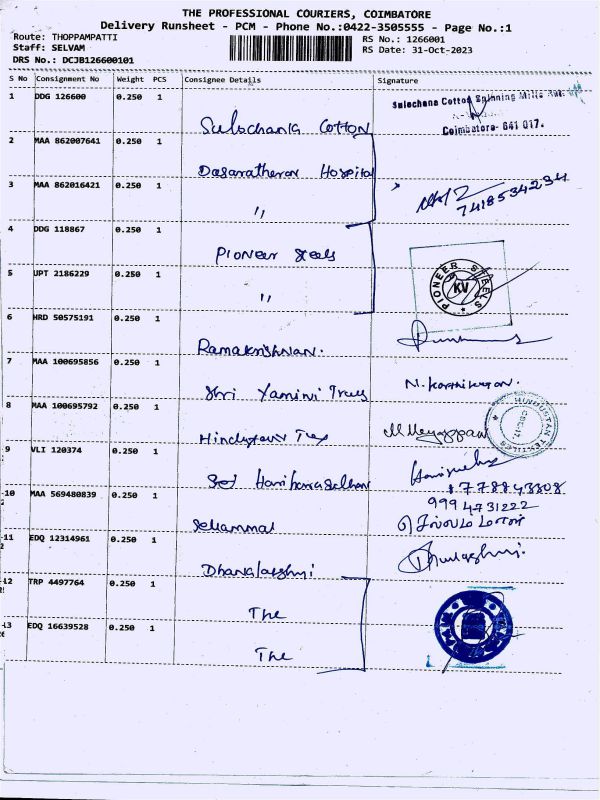 THE PROFESSIONAL COURIERS, COIMBATORE
Delivery Runsheet - PCM - Phone No.:0422-3505555 - Page No.:1
Route: THOPPAMPATTI
RS No.: 1266001
Staff: SELVAM
RS Date: 31-Oct-2023
DRS No.: DCJB126600101
S No Consignment No Weight PCS Consignee Details Signature
1 DDG 126600 0.250 1 Sulochana COTTON
Sulochana Cotton Spinning Mills
Coimbatore- 641 017.
2 MAA 862007641 0.250 1 Dasaratheran Hospital
3 MAA 862016421 0.250 1 "
7418534234
4 DDG 118867 0.250 1 Pioneer Steels
5 UPT 2186229 0.250 1 "
PIONEER STEELS
KV
6 HRD 50575191 0.250 1 Ramakrishnan.
7 MAA 100695856 0.250 1 Shri Yamini N. Karthikeyan.
8 MAA 100695792 0.250 1 Hindustan Tex M Meyyappan
HINDUSTAN TEXTILES
9 VLI 120374 0.250 1
10 MAA 569480839 0.250 1 Sellammal
9994731222
11 EDQ 12314961 0.250 1 Dhanalakshmi
12 TRP 4497764 0.250 1 The
13 EDQ 16639528 0.250 1 The